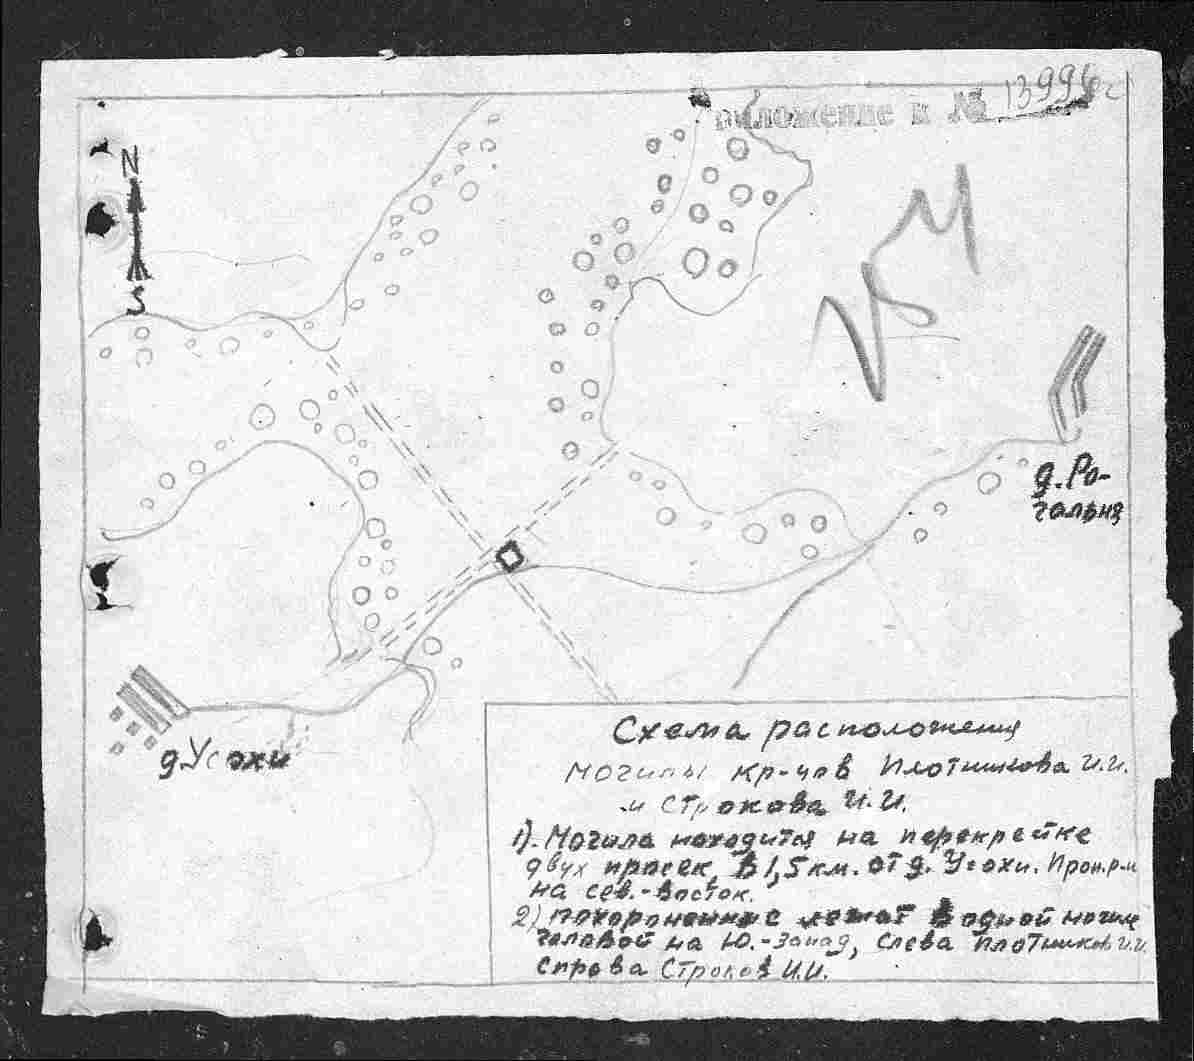 приложение к № 13996с
N
S
д. Ро-
гальня
д Усохи
Схема расположения
могилы кр-цов Плотникова И.И.
и Строкова И.И.
1). Могила находится на перекрёстке
двух просек, в 1,5 км. от д. Усохи.
на сев.-восток.
2) Похороненные лежат в одной могиле
головой на Ю.-Запад, слева Плотников И.И.
справа Строков И.И.